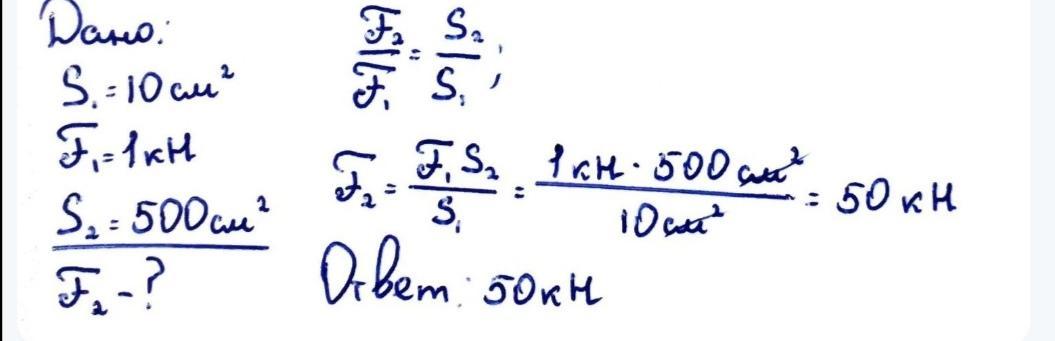 Дано:
S₁ = 10 см²
F₁ = 1 кН
S₂ = 500 см²
F₂ - ?
F₂/F₁ = S₂/S₁;
F₂ = F₁S₂/S₁ = 1 кН · 500 см²/10 см² = 50 кН
Ответ: 50 кН